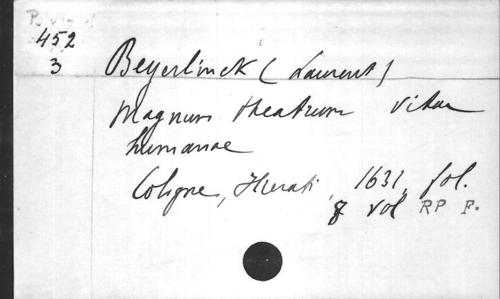 452
3
Beyerlinck (Laurent)
Magnum theatrum vitae
humanae
Cologne, Hierati, 1631, fol.
8 vol RP F.